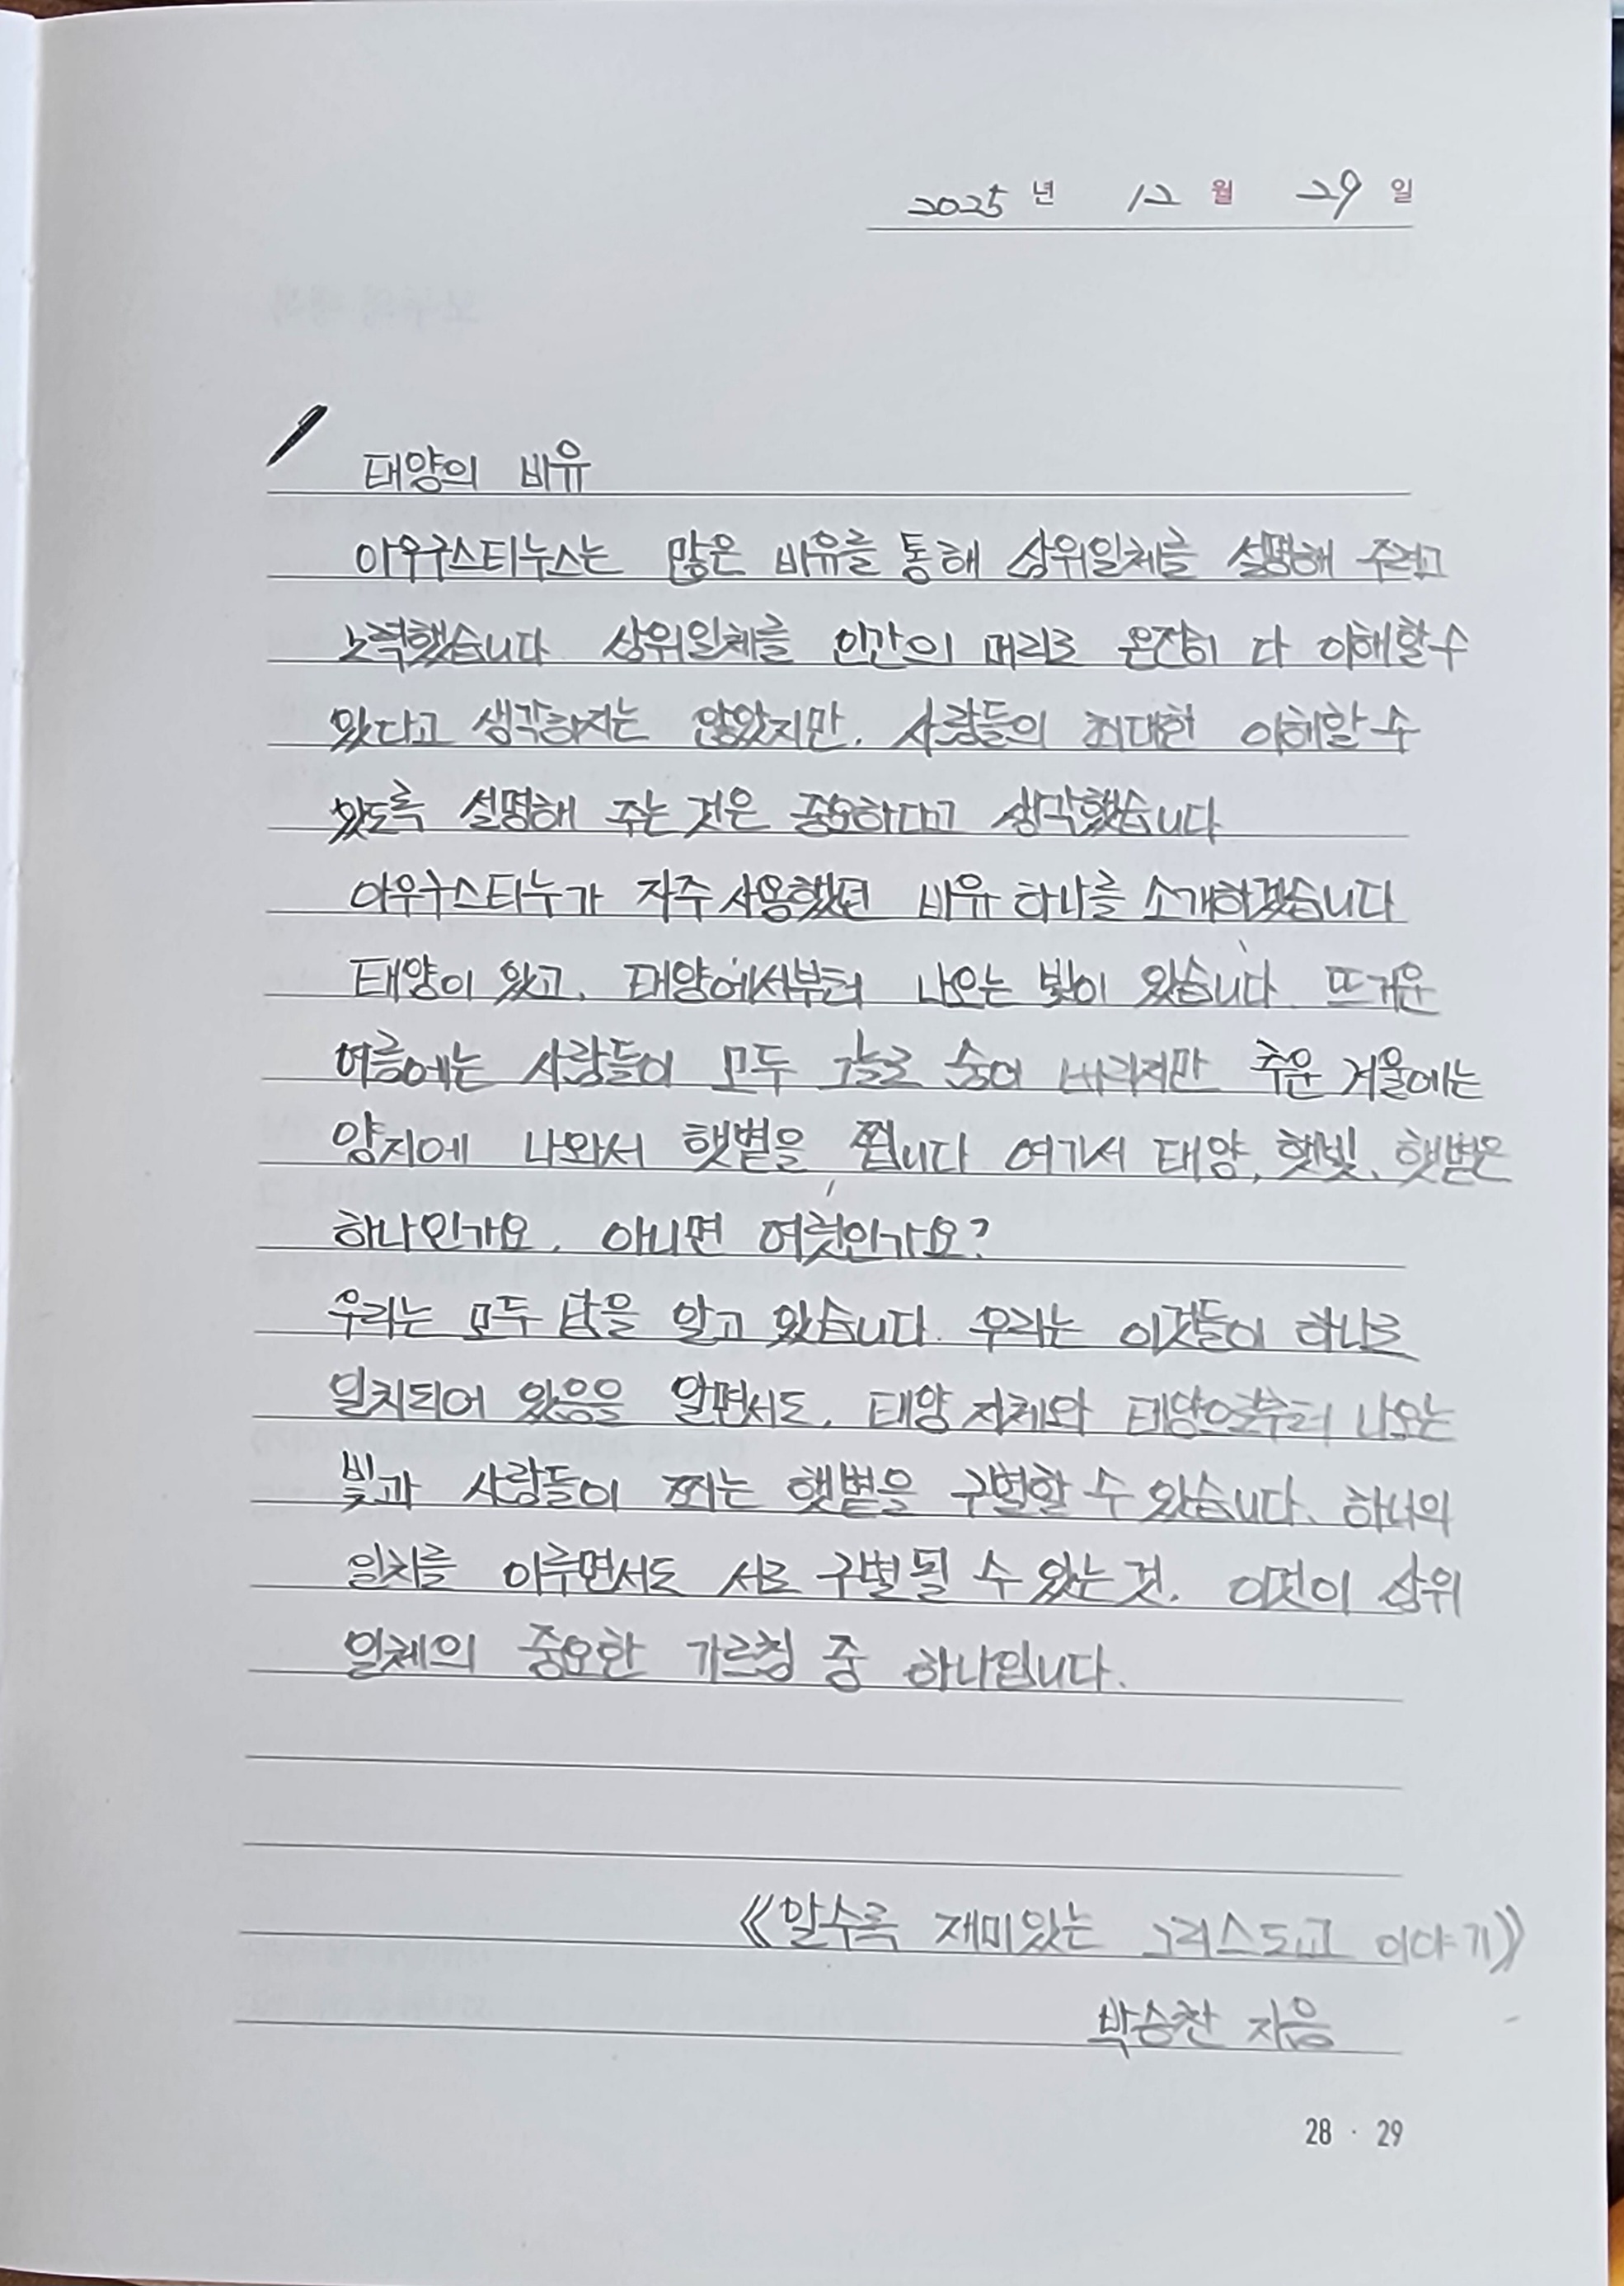 2025 년 12 월 29 일
태양의 비유
아우구스티누스는 많은 비유를 통해 삼위일체를 설명해 주려고
노력했습니다 삼위일체를 인간의 머리로 온전히 다 이해할 수
있다고 생각하지는 않았지만, 사람들의 최대한 이해할 수
있도록 설명해 주는 것은 중요하다고 생각했습니다
아우구스티누가 자주 사용했던 비유 하나를 소개하겠습니다
태양이 있고, 태양에서부터 나오는 빛이 있습니다. 뜨거운
여름에는 사람들이 모두 그늘로 숨어 버리지만 추운 겨울에는
양지에 나와서 햇볕을 쬡니다 여기서 태양, 햇빛, 햇볕은
하나인가요, 아니면 여럿인가요?
우리는 모두 답을 알고 있습니다. 우리는 이것들이 하나로
일치되어 있음을 알면서도, 태양 자체와 태양으로부터 나오는
빛과 사람들이 쬐는 햇볕을 구별할 수 있습니다. 하나의
일치를 이루면서도 서로 구별될 수 있는 것, 이것이 삼위
일체의 중요한 가르침 중 하나입니다.
《알수록 재미있는 그리스도교 이야기》
박승찬 지음
28 · 29